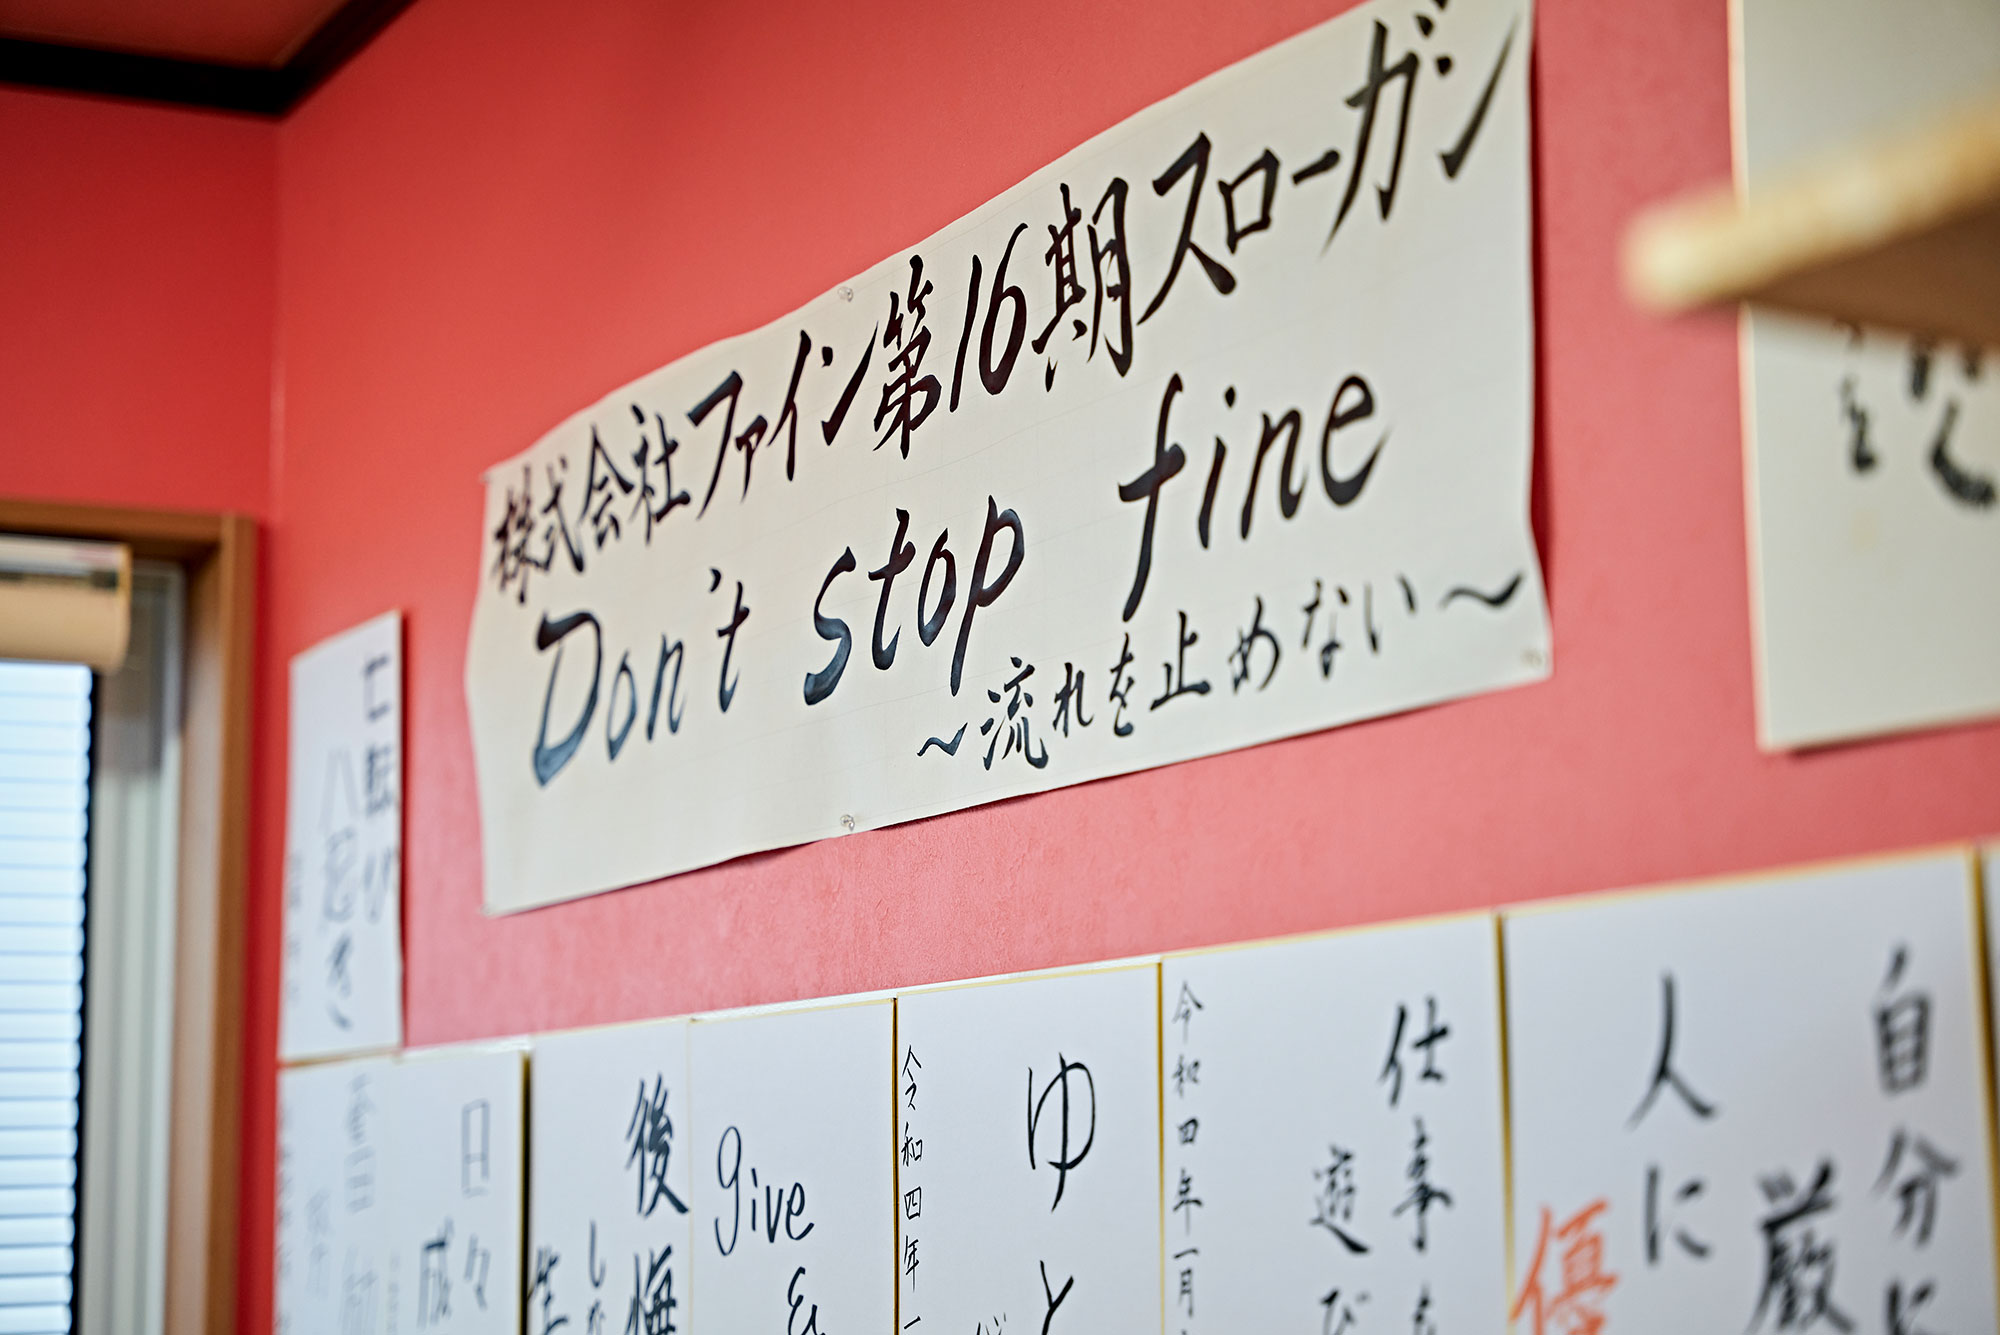 株式会社ファイン第16期スローガン
Don't stop fine
～流れを止めない～
七転び
八起き
日々
成
後悔
しな
生
give
&
ゆと
令和四年一
仕事も
遊び
令和四年一月
自分に
厳
人に
優